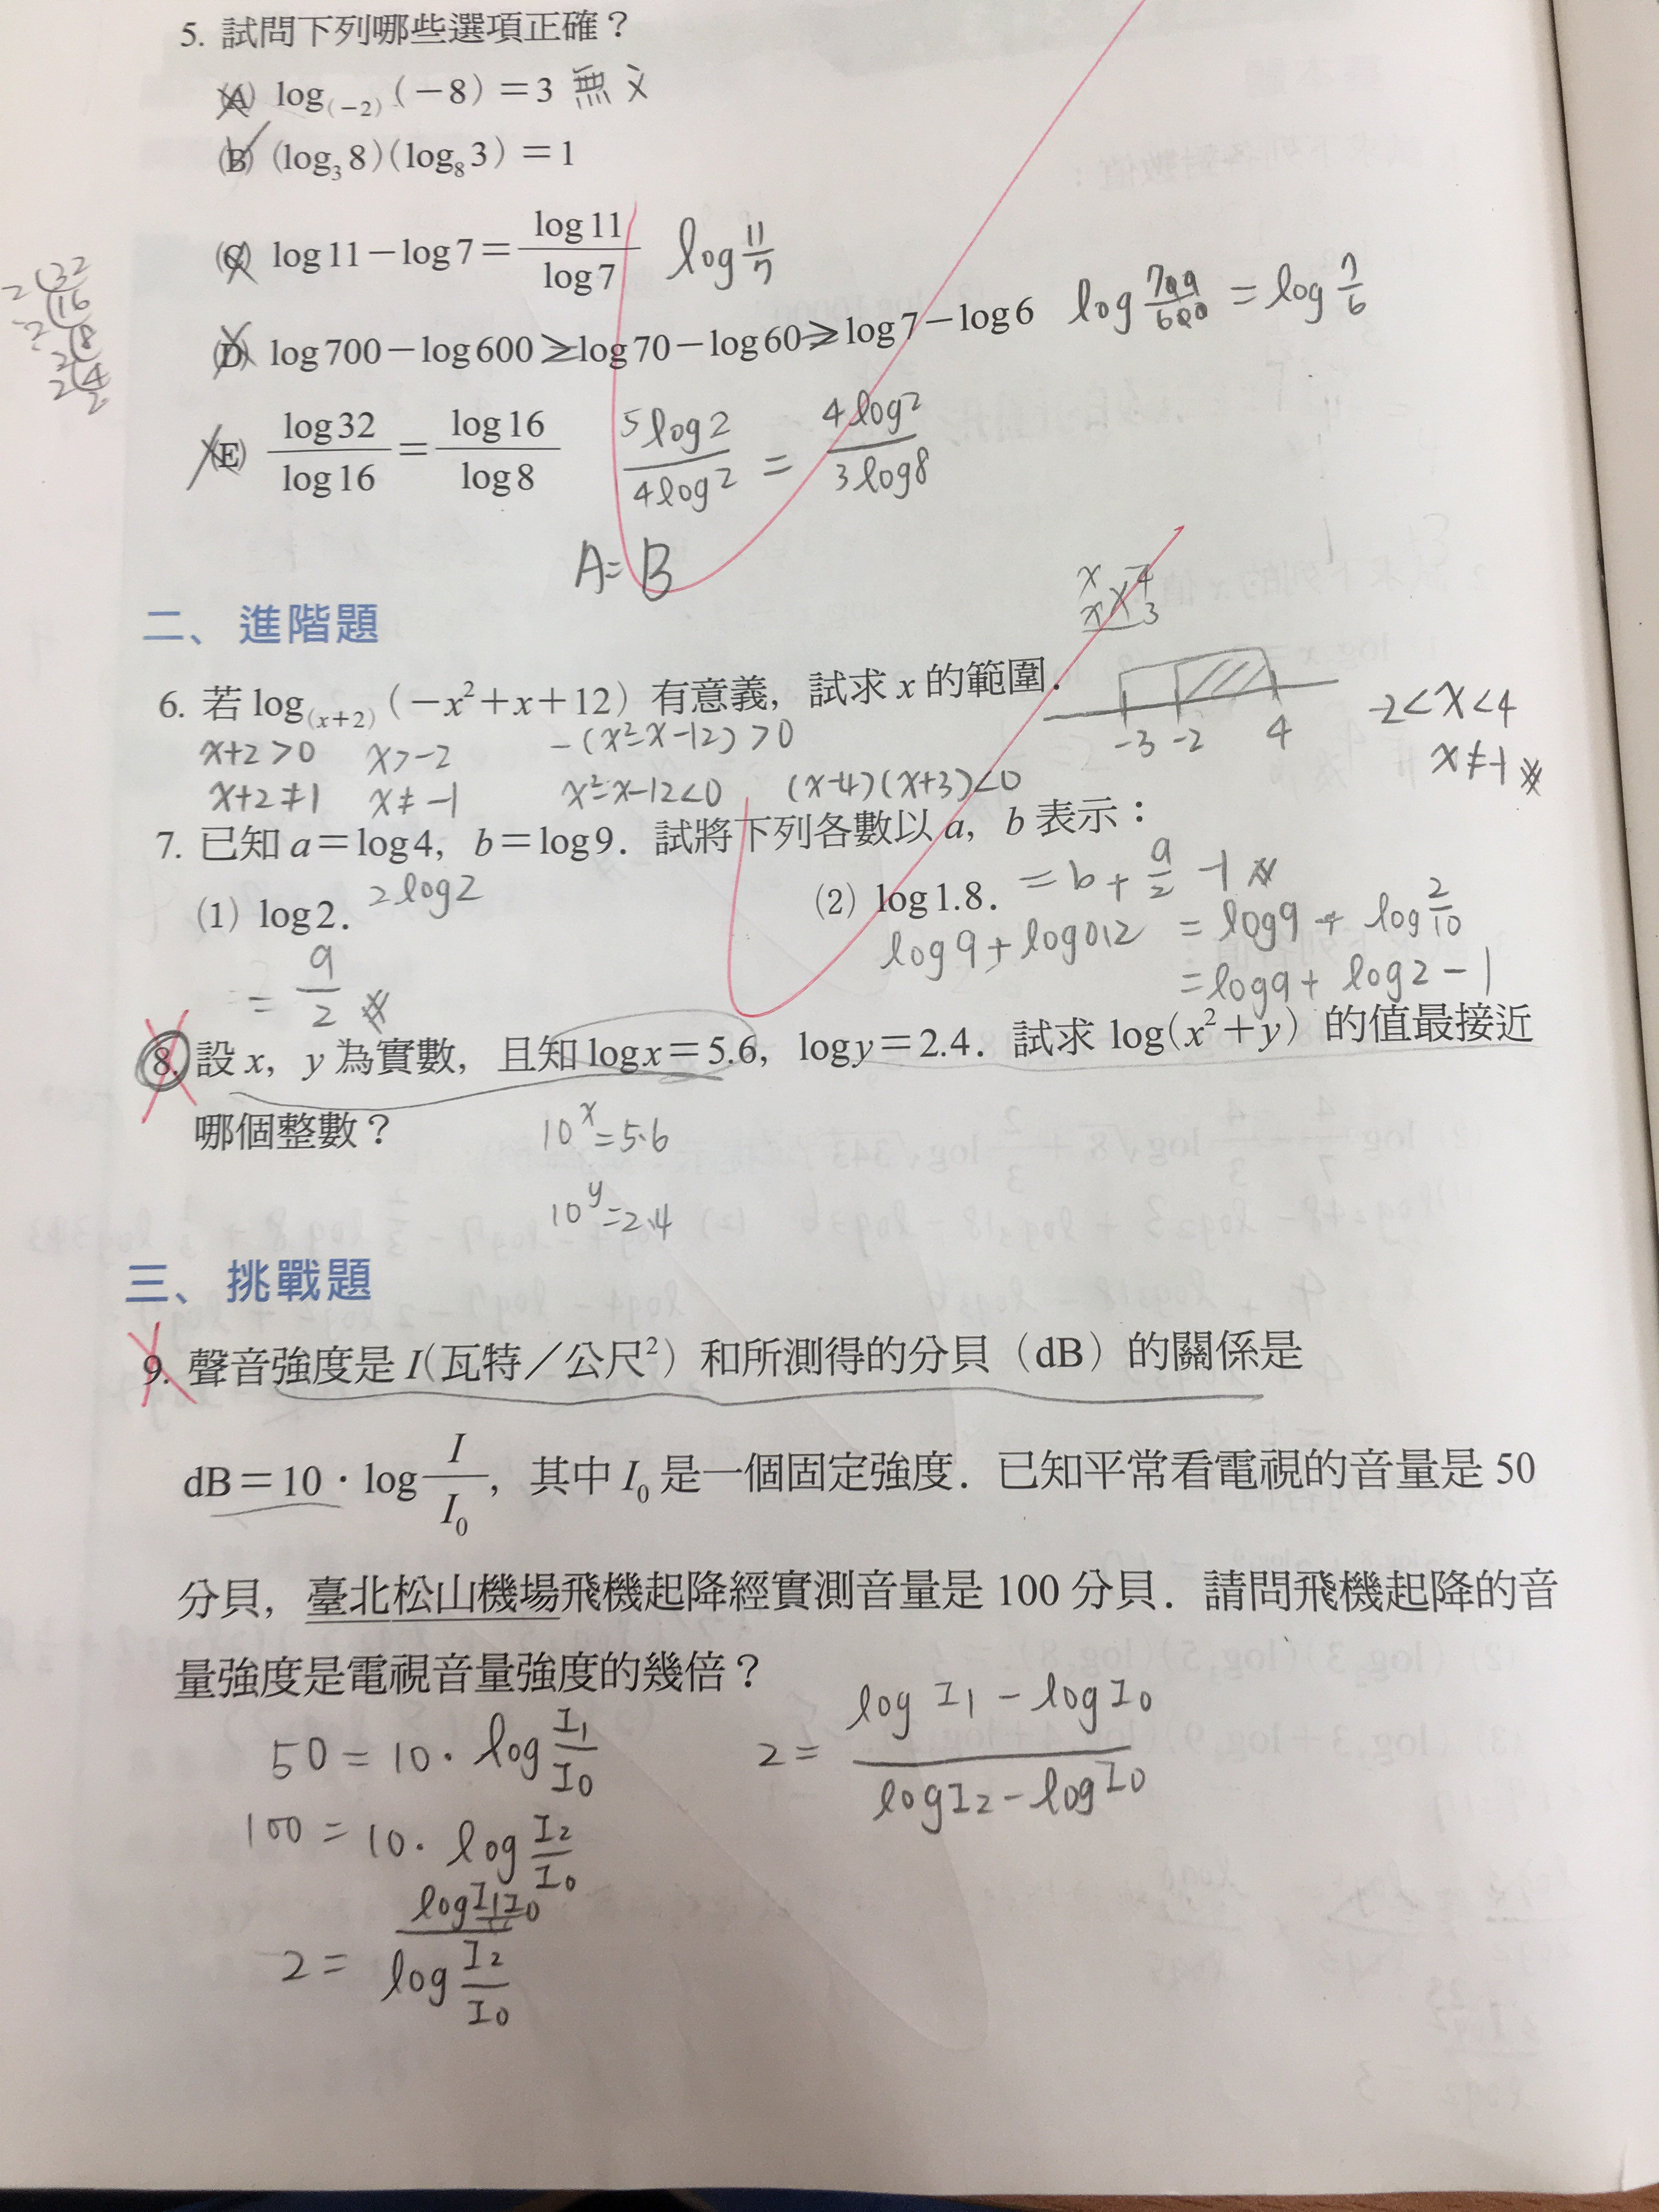 5. 試問下列哪些選項正確？
(A) log₍₋₂₎(−8)＝3 無意
(B) (log₃8)(log₈3)＝1
(C) log11−log7＝log11/log7 log 11/7
(D) log700−log600＞log70−log60＞log7−log6 log 700/600 = log 7/6
(E) log32/log16＝log16/log8 5log2/4log2 = 4log2/3log8
2 32
2 16
2 8
2 4
2
A= B
二、進階題
x 4
x 3
6. 若 log₍ₓ₊₂₎(−x²＋x＋12) 有意義，試求 x 的範圍．
-3 -2 4
-2<x<4
x≠-1
x+2>0 x>-2 -(x²-x-12)>0
x+2≠1 x≠-1 x²-x-12<0 (x-4)(x+3)<0
7. 已知 a＝log4，b＝log9．試將下列各數以 a，b 表示：
(1) log2． 2log2
= a/2
(2) log1.8． = b + a/2 -1
log9+log0.2 = log9 + log 2/10
= log9+ log2 - 1
8. 設 x，y 為實數，且知 logx＝5.6，logy＝2.4．試求 log(x²＋y) 的值最接近
哪個整數？
10^x=5.6
10^y=2.4
三、挑戰題
9. 聲音強度是 I(瓦特／公尺²) 和所測得的分貝（dB）的關係是
dB＝10‧log I/I₀，其中 I₀ 是一個固定強度．已知平常看電視的音量是 50
分貝，臺北松山機場飛機起降經實測音量是 100 分貝．請問飛機起降的音
量強度是電視音量強度的幾倍？
50 = 10 · log I₁/I₀
100 = 10 · log I₂/I₀
2 = log I₁I₀ / log I₂/I₀
2 = (log I₁ - log I₀)/(log I₂ - log I₀)